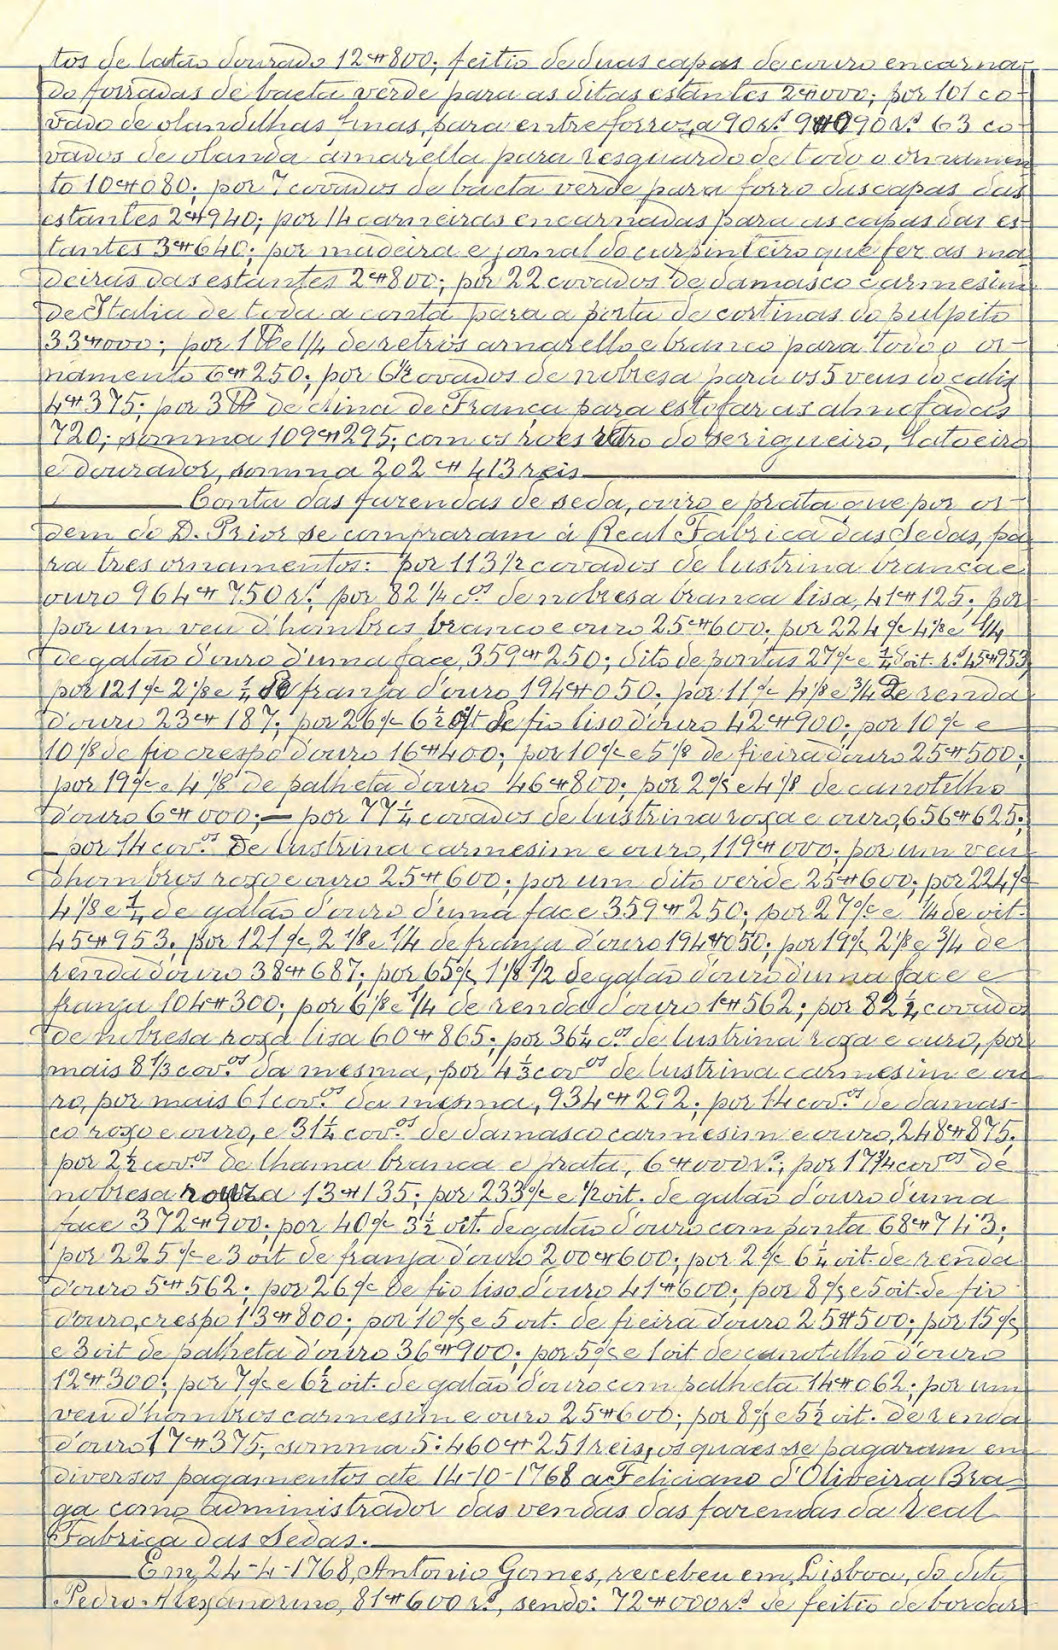 tos de latão dourado 12$800; feitio de duas capas de couro encarna-
do forradas de baeta verde para as ditas estantes 2$000; por 101 co-
vado de olandilhas finas, para entreforros, a 90 r.s 9$090 r.s 63 co-
vados de olanda amarella para resguardo de todo o ornamen
to 10$080; por 7 covados de baeta verde para forro das capas das
estantes 2$940; por 14 carneiras encarnadas para as capas das es-
tantes 3$640; por madeira e jornal do carpinteiro que fez as ma
deiras das estantes 2$800; por 22 covados de damasco carmesim
de Italia de toda a conta para a porta de cortinas do pulpito
33$000; por 1 lb e 1/4 de retrós amarello e branco para todo o or-
namento 6$250; por 6 1/4 covados de nobresa para os 5 veus do calix
4$375; por 3 lb de clina de França para estofar as almofadas
720; somma 109$295; com os róes retro do serigueiro, latoeiro
e dourador, somma 202$413 reis
Conta das fazendas de seda, ouro e prata que por or-
dem do D. Prior se compraram á Real Fabrica das Sedas, pa
ra tres ornamentos: por 113 1/2 covados de lustrina branca e
ouro 964$750 r.s; por 82 1/4 c.os de nobresa branca lisa, 41$125; por
por um veu d'hombros branco e ouro 25$600; por 224 %c 4/8 e 1/4
de galão d'ouro d'uma face, 359$250; dito de pontas 27 %c e 1/4 oit. r.s 45$953
por 121 %c 2/8 e 1/4 de franja d'ouro 194$050; por 11 %c 4/8 e 3/4 de renda
d'ouro 23$187; por 26 %c 6 1/2 oit de fio liso d'ouro 42$900; por 10 %c e
10/8 de fio crespo d'ouro 16$400; por 10 %c e 5/8 de fieira d'ouro 25$500;
por 19 %c e 4/8 de palheta d'ouro 46$800; por 2 %c e 4/8 de canotilho
d'ouro 6$000; — por 77 1/4 covados de lustrina roxa e ouro, 656$625;
— por 14 cov.os de lustrina carmesim e ouro, 119$000; por um veu
d'hombros roxo e ouro 25$600; por um dito verde 25$600; por 224 %c
4/8 e 1/4 de galão d'ouro d'uma face 359$250; por 27 %c e 1/4 de oit.
45$953; por 121 %c, 2/8 e 1/4 de franja d'ouro 194$050; por 19 %c 2/8 e 3/4 de
renda d'ouro 38$687; por 65 %c, 1/8 1/2 de galão d'ouro d'uma face e
franja 104$300; por 6/8 e 1/4 de renda d'ouro 1$562; por 82 1/4 covados
de nobresa roxa lisa 60$865; por 36 1/4 c.os de lustrina roxa e ouro, por
mais 8 1/3 cov.os da mesma, por 4 1/3 cov.os de lustrina carmesim e ou
ro, por mais 61 cov.os da mesma, 934$292; por 14 cov.os de damas-
co roxo e ouro, e 31 1/4 cov.os de damasco carmesim e ouro, 248$875;
por 2 1/2 cov.os de lhama branca e prata, 6$000 r.s; por 17 3/4 cov.os de
nobresa roxa 13$135; por 233 %c e 1/2 oit. de galão d'ouro d'uma
face 372$900; por 40 %c 3 1/2 oit. de galão d'ouro com ponta 68$743;
por 225 %c e 3 oit de franja d'ouro 200$600; por 2 %c 6 1/4 oit. de renda
d'ouro 5$562; por 26 %c de fio liso d'ouro 41$600; por 8 %c e 5 oit. de fio
d'ouro, crespo 13$800; por 10 %c e 5 oit. de fieira d'ouro 25$500; por 15 %c
e 3 oit de palheta d'ouro 36$900; por 5 %c e 1 oit de canotilho d'ouro
12$300; por 7 %c e 6 1/2 oit. de galão d'ouro com palheta 14$062; por um
veu d'hombros carmesim e ouro 25$600; por 8 %c e 5 1/2 oit. de renda
d'ouro 17$375; somma 5:460$251 reis, os quaes se pagaram em
diversos pagamentos até 14-10-1768 a Feliciano d'Oliveira Bra-
ga como administrador das vendas das fazendas da Real
Fabrica das Sedas.
Em 24-4-1768, Antonio Gomes, recebeu em Lisboa, do dito
Pedro Alexandrino, 81$600 r.s, sendo: 72$000 r.s de feitio de bordar